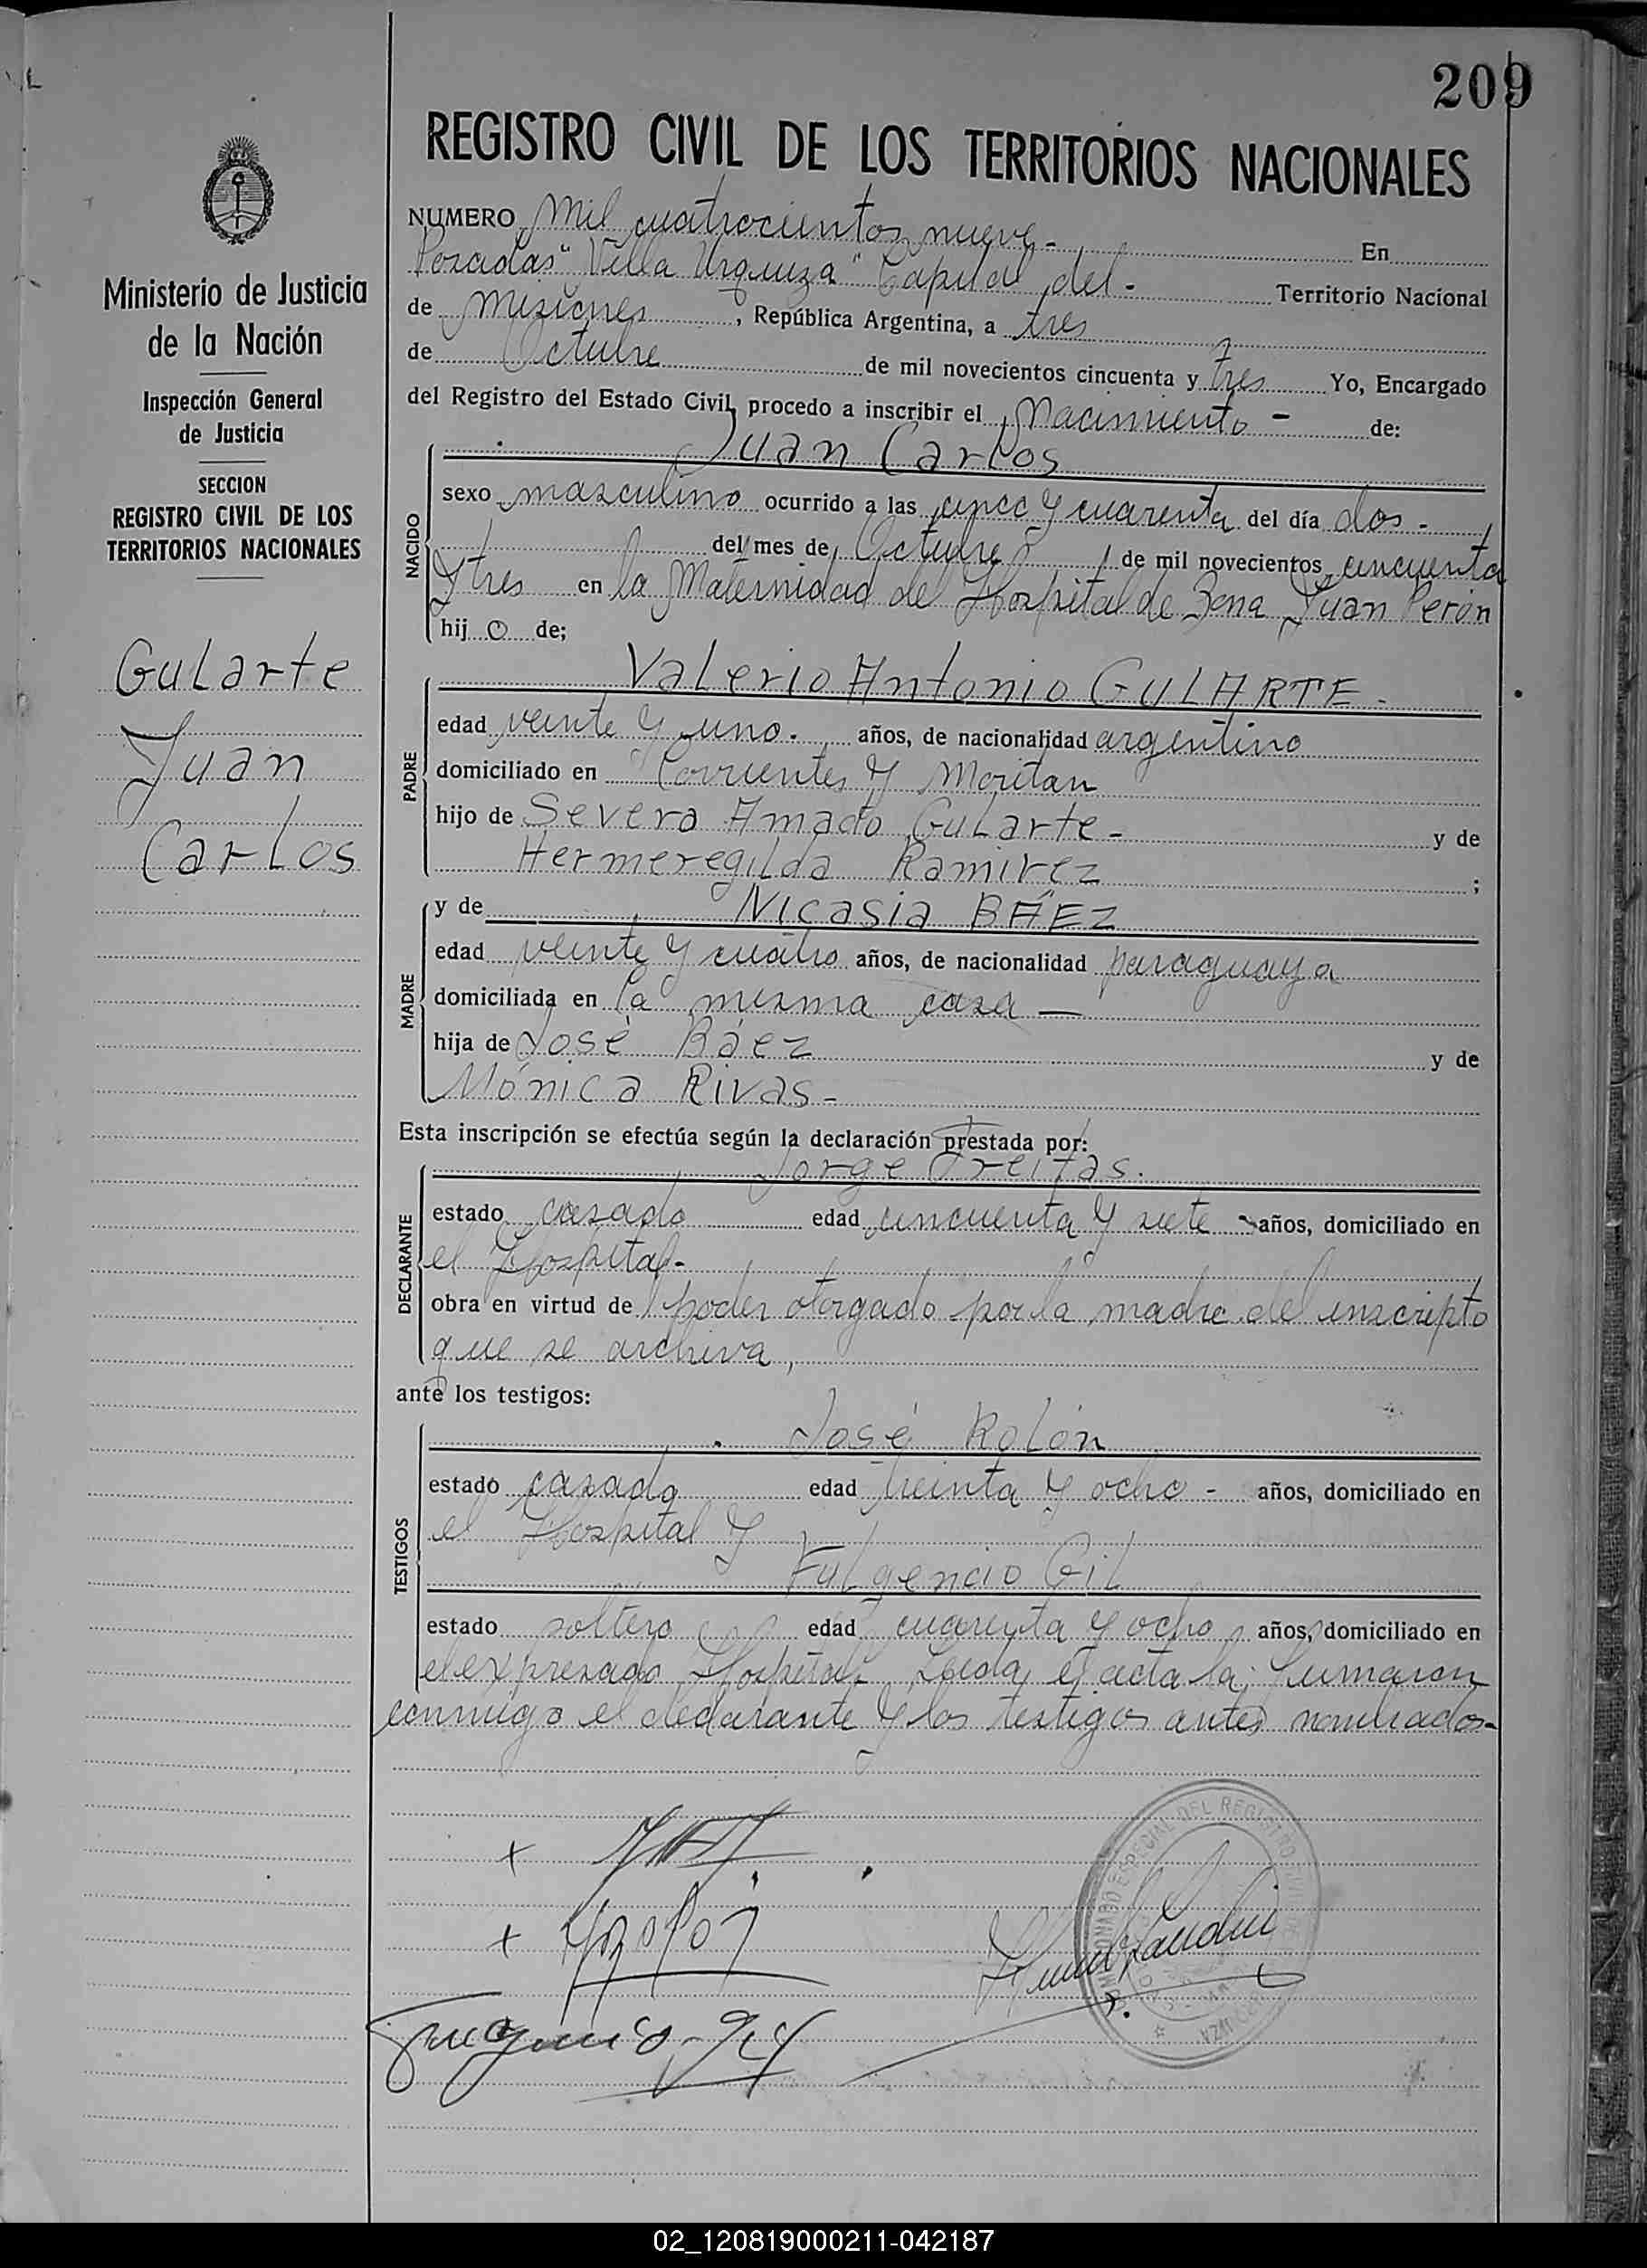 209
REGISTRO CIVIL DE LOS TERRITORIOS NACIONALES
Ministerio de Justicia
de la Nación
Inspección General
de Justicia
SECCION
REGISTRO CIVIL DE LOS
TERRITORIOS NACIONALES
Gularte
Juan
Carlos
NUMERO Mil cuatrocientos nueve - En
Posadas "Villa Urquiza" Capital del - Territorio Nacional
de Misiones, República Argentina, a tres
de Octubre de mil novecientos cincuenta y tres Yo, Encargado
del Registro del Estado Civil, procedo a inscribir el Nacimiento - de:
Juan Carlos
NACIDO
sexo masculino ocurrido a las cinco y cuarenta del día dos -
del mes de Octubre de mil novecientos cincuenta
y tres en la Maternidad del Hospital de Zona Juan Perón
hijo de;
PADRE
Valerio Antonio GULARTE -
edad veinte y uno. años, de nacionalidad argentino
domiciliado en Corrientes y Moritan
hijo de Severo Amado Gularte - y de
Hermeregilda Ramirez ;
MADRE
y de Nicasia BÁEZ
edad veinte y cuatro años, de nacionalidad paraguaya
domiciliada en la misma casa —
hija de José Báez y de
Mónica Rivas -
Esta inscripción se efectúa según la declaración prestada por:
DECLARANTE
Jorge Freitas.
estado casado edad cincuenta y siete años, domiciliado en
el Hospital -
obra en virtud de poder otorgado por la madre del inscripto
que se archiva,
ante los testigos:
TESTIGOS
José Rolón
estado casado edad treinta y ocho - años, domiciliado en
el Hospital y
Fulgencio Gil
estado soltero edad cuarenta y ocho años, domiciliado en
el expresado Hospital. Leida el acta la firmaron
conmigo el declarante y los testigos antes nombrados -
02_120819000211-042187